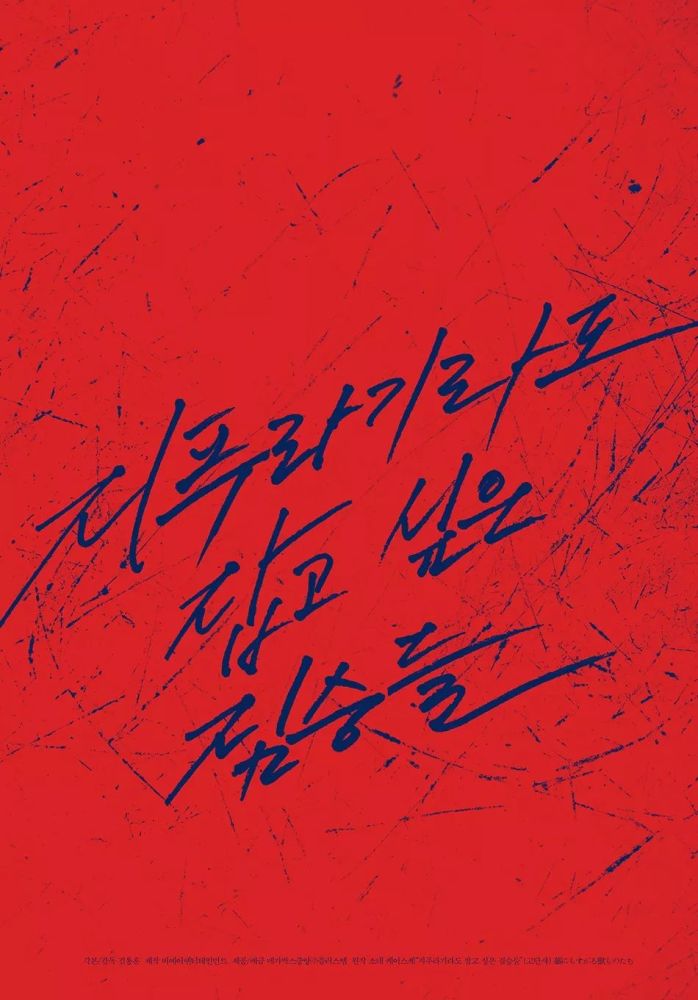 지푸라기라도
잡고 싶은
짐승들
각본/감독 김용훈 제작 비에이엔터테인먼트 제공/배급 메가박스중앙㈜플러스엠 원작 소네 케이스케 "지푸라기라도 잡고 싶은 짐승들"